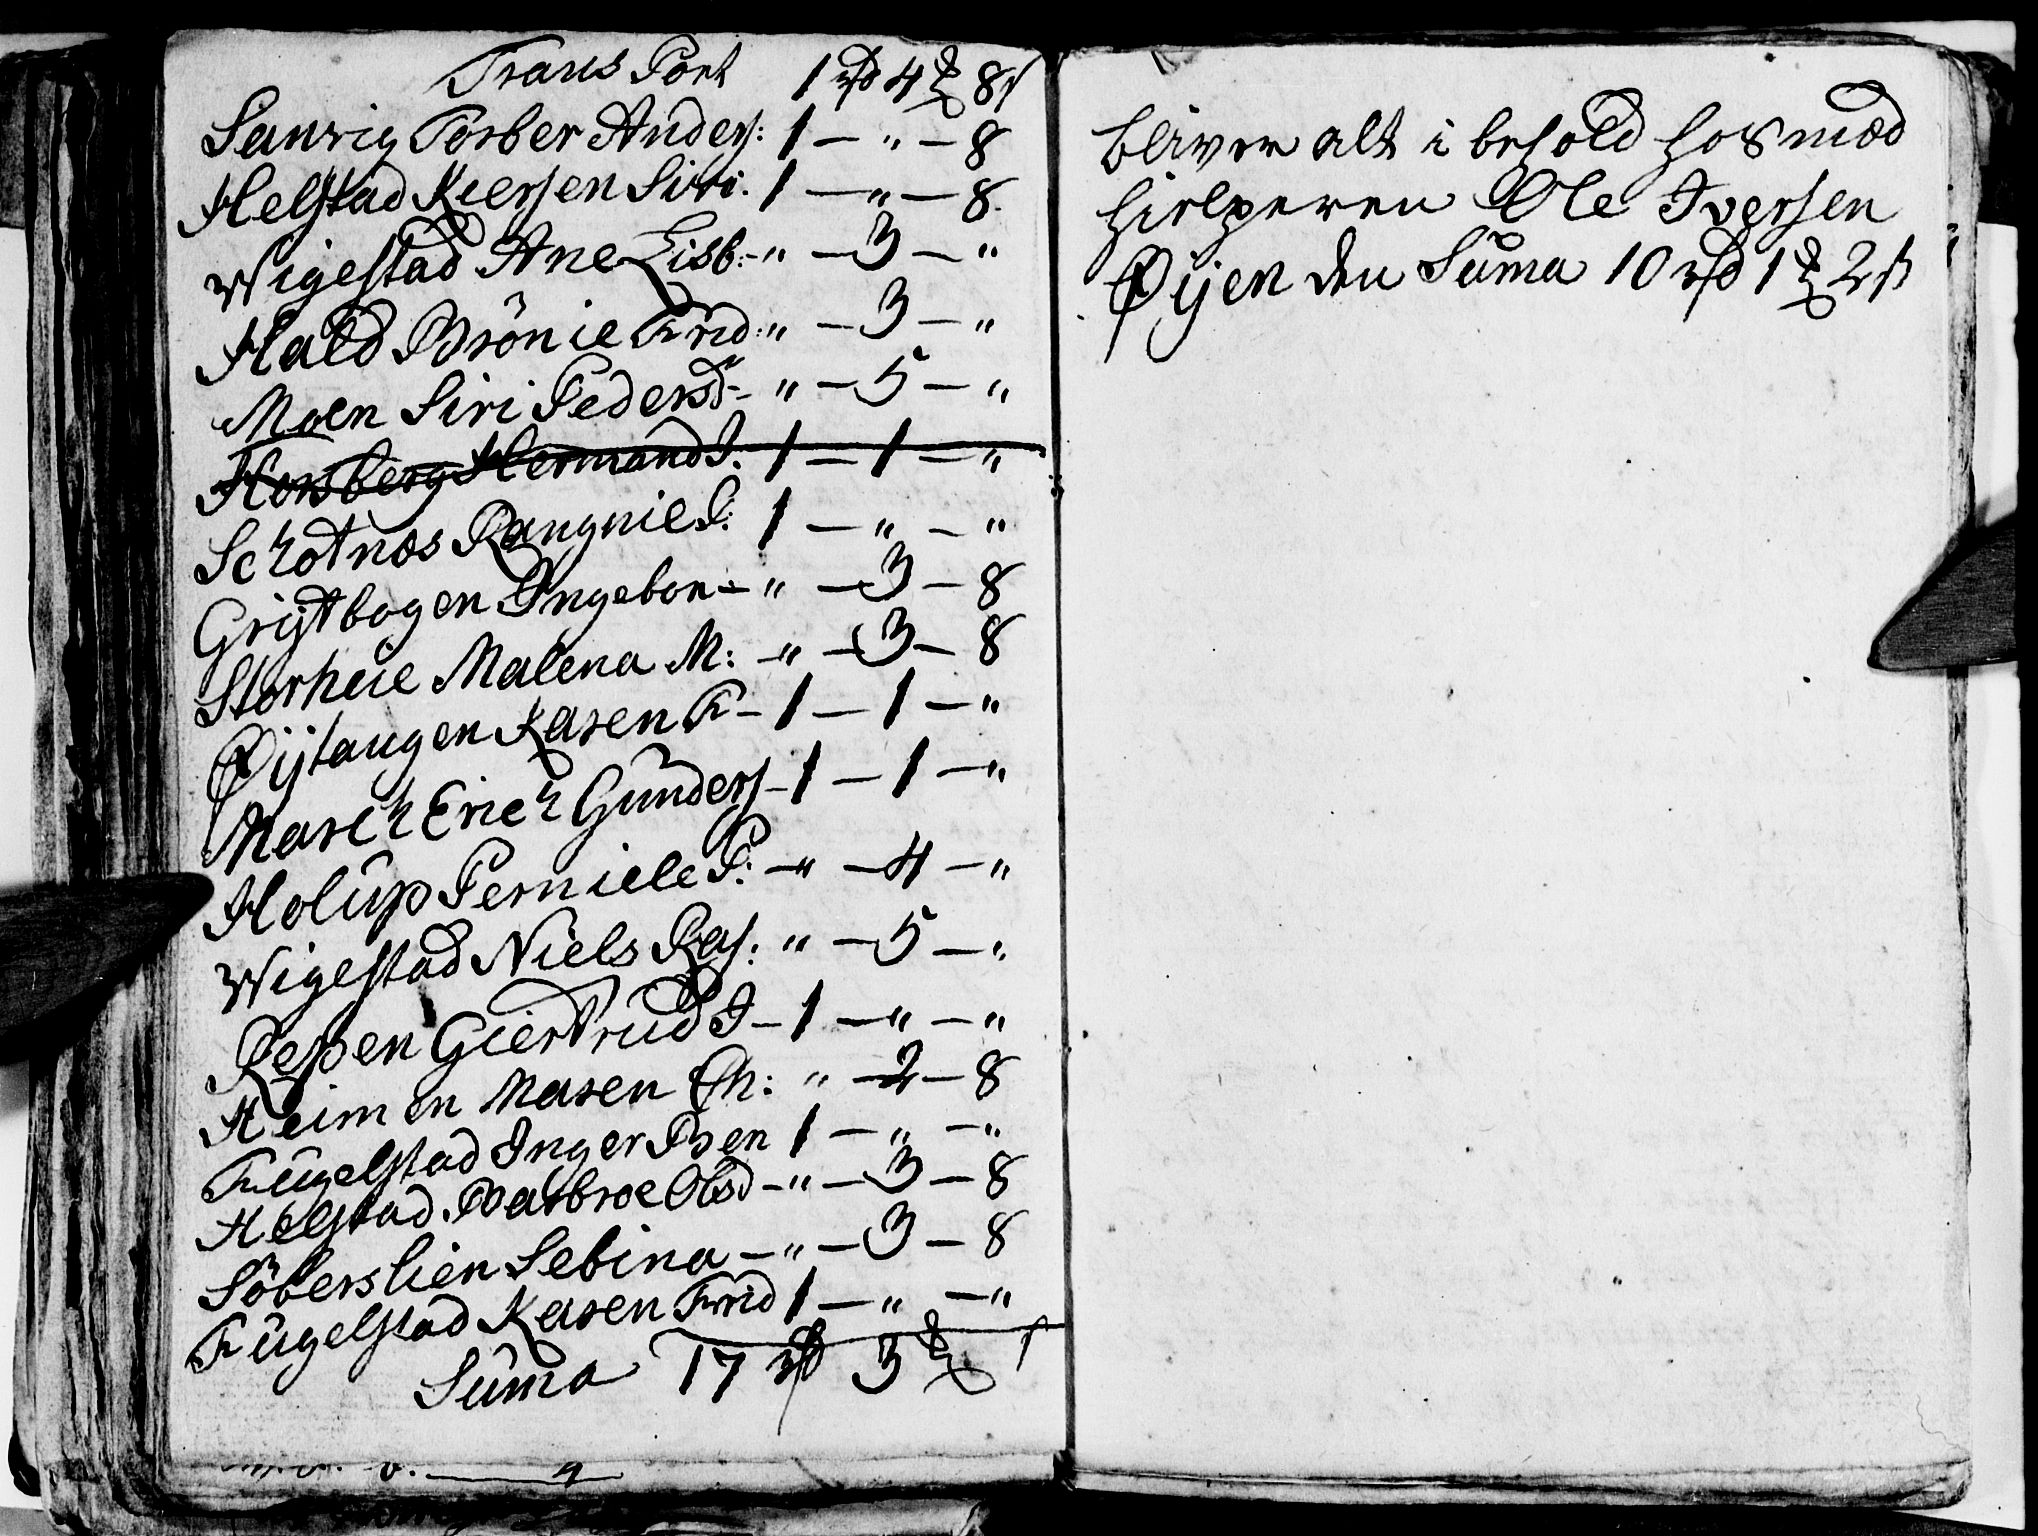 Trans Port 1 rd 4 ℔ 8 s
Sanvig Torber Anders: 1 — " — 8
Helstad Kiersen Siri: 1 — " — 8
Wigestad Ane Lisb: - " — 3 — "
Hald Brönie Frid: " — 3 — "
Moen Siri Pedersd - " — 5 — "
Horsberg Hermand J. 1 — 1 — "
Schotnæs Rangnil P: 1 — " — "
Gristbogen Ingebor - " — 3 — 8
Storheie Malena M: - " — 3 — 8
Øijtangen Karen F - 1 — 1 — "
March Erich Gunders - 1 — 1 — "
Holüp Perniele P: - " — 4 — "
Wigestad Niels Ras: " — 5 — "
Respen Giertrud J - 1 — " — "
Heimen Maren Ch: " — 2 — 8
Fügelstad Inger Ben 1 — " — "
Helstad Barbroe Olsd - " — 3 — 8
Söberslien Sebina — " — 3 — 8
Fügelstad Karen Frid 1 — " — "
Süma 17 rd 3 ℔ s
bliver alt i behold hos med
hielperen Ole Iversen
Øijen den Süma 10 rd 1 ℔ 2 s